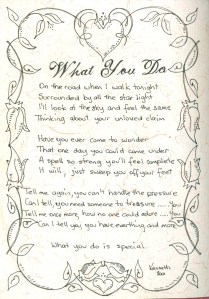 What You Do
On the road when I walk tonight
Surrounded by all the star light
I'll look at the sky and feel the same
Thinking about your unloved claim
Have you ever come to wonder
That one day you could came under
A spell so strong you'll feel complete
It will, just sweep you off your feet
Tell me again, you can't handle the pressure
Can I tell, you need someone to treasure ..... You
Tell me once more, how no one could adore ..... You
Can I tell you, you have everthing and more
What you do is special.
Kenneth